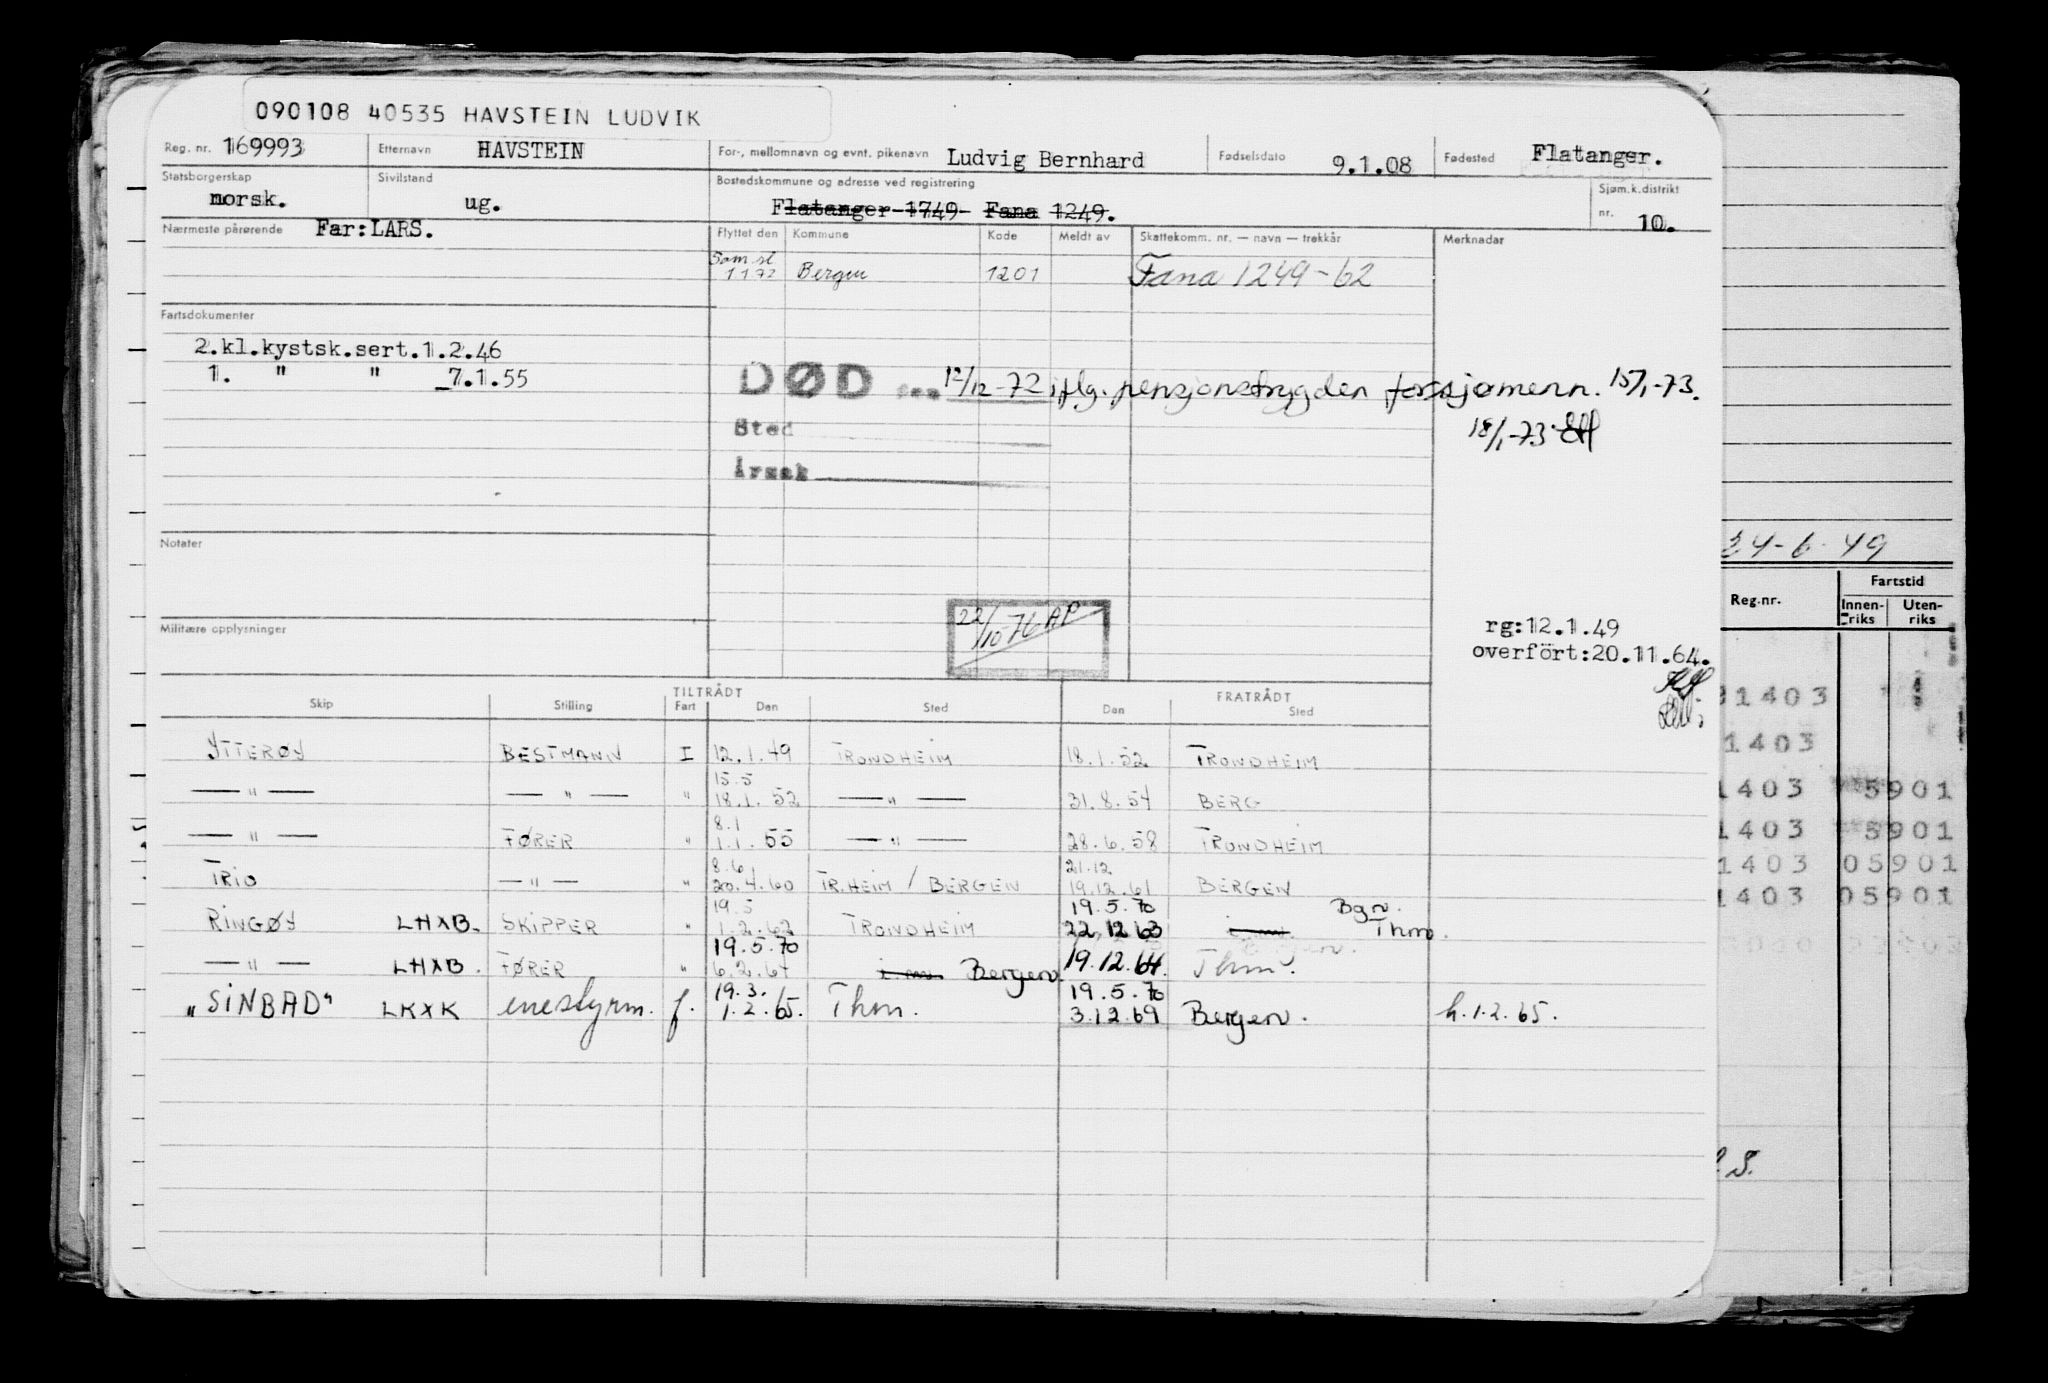 090108 40535 HAVSTEIN LUDVIK
Reg. nr. 169993 Etternavn HAVSTEIN For-, mellomnavn og evnt. pikenavn Ludvig Bernhard Fødselsdato 9.1.08 Fødested Flatanger.
Statsborgerskap norsk. Sivilstand ug. Bostedskommune og adresse ved registrering Flatanger 1749- Fana 1249. Sjøm.k.distrikt nr. 10.
Nærmeste pårørende Far:LARS. Flyttet den Kommune Kode Meldt av Skattekomm. nr. — navn — trekkår Merknader
Sam.sl
1 1 72 Bergen 1201 Fana 1249-62
Fartsdokumenter
2.kl.kystsk.sert.1.2.46
1. " " 7.1.55
DØD 12/12-72 iflg. pensjonstrygden for sjømenn. 15/1-73.
Sted
18/1-73
Årsak
Notater
24-6-49
Fartstid
Reg.nr. Innen-riks Uten-riks
22/10-76 AP
Militære opplysninger
rg:12.1.49
overført:20.11.64.
Skip Stilling TILTRÅDT Fart Den Sted FRATRÅDT Den Sted
31403
1403
1403 5901
1403 5901
1403 05901
1403 05901
YTTERØY BESTMANN I 12.1.49 TRONDHEIM 18.1.52 TRONDHEIM
15.5
— " — — " — " 18.1.52 — " — 31.8.54 BERG
8.1
— " — FØRER " 1.1.55 — " — 28.6.58 TRONDHEIM
8.6 21.12
TRIO — " — " 20.4.60 TR.HEIM / BERGEN 19.12.61 BERGEN
19.5 19.5.70 Bgn.
RINGØY LHXB. SKIPPER " 1.2.62 TRONDHEIM 22.12 63 Thm.
19.5.70
— " — LHXB. FØRER " 6.2.64 Bergen. 19.12.64. Thm.
19.3. 19.5.70
"SINBAD" LKXK enestyrm. f. 1.2.65. Thm. 3.12.69 Bergen. h.1.2.65.